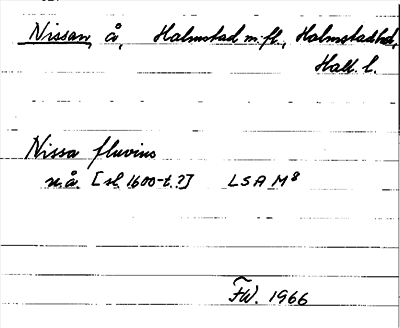 Nissan, å, Halmstad m. fl., Halmstads hd,
Hall. l.
Nissa fluvius
u.å. [sl. 1600-t.?] LSA M8
FW. 1966